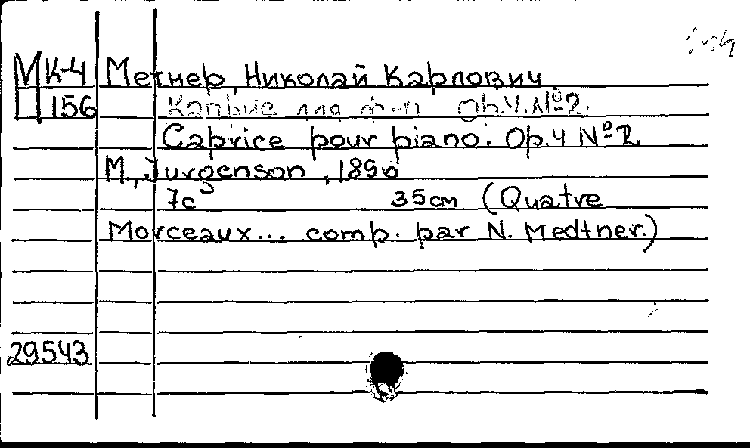 М К-4 Метнер, Николай Карлович
П 156 Каприс для ф-п Ор.4.№2.
Caprice pour piano. Op.4 №2.
M., Jurgenson, 1890
7с 35см (Quatre
Morceaux... comp. par N. Medtner.)
29543